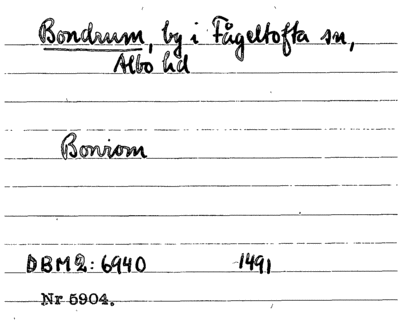 Bondrum, by i Fågeltofta sn,
Albo hd
Bonrom
DBM2:6940 1491
Nr 5904.